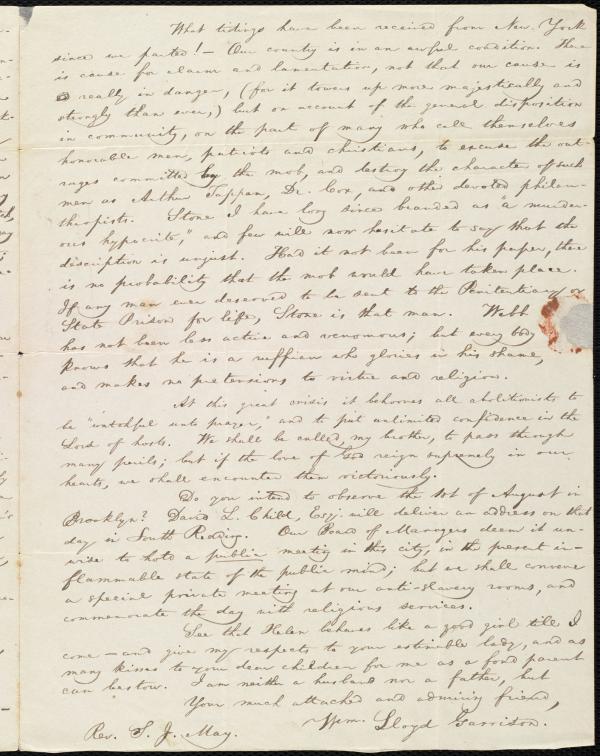 What tidings have been received from New-York
since we parted! — Our country is in an awful condition. There
is cause for alarm and lamentation, not that our cause is
really in danger, (for it towers up more majestically and
strongly than ever,) but on account of the general disposition
in community, on the part of many who call themselves
honorable men, patriots and christians, to excuse the out-
rages committed by the mob, and destroy the character of such
men as Arthur Tappan, Dr. Cox, and other devoted philan-
thropists. Stone I have long since branded as "a murder-
ous hypocrite," and few will now hesitate to say that the
description is unjust. Had it not been for his paper, there
is no probability that the mob would have taken place.
If any man ever deserved to be sent to the Penitentiary or
State Prison for life, Stone is that man. Webb
has not been less active and venomous; but every body
knows that he is a ruffian who glories in his shame,
and makes no pretensions to virtue and religion.
At this great crisis it behooves all abolitionists to
be "watchful unto prayer," and to put unlimited confidence in the
Lord of hosts. We shall be called, my brother, to pass through
many perils; but if the love of God reign supremely in our
hearts, we shall encounter them victoriously.
Do you intend to observe the 1st of August in
Brooklyn? David L. Child, Esq. will deliver an address on that
day in South Reading. Our Board of Managers deem it un-
wise to hold a public meeting in this city, in the present in-
flammable state of the public mind; but we shall convene
a special private meeting at our anti-slavery rooms, and
commemorate the day with religious services.
See that Helen behaves like a good girl till I
come — and give my respects to your estimable lady, and as
many kisses to your dear children for me as a fond parent
can bestow. I am neither a husband nor a father, but
Your much attached and admiring friend,
Wm. Lloyd Garrison.
Rev. S. J. May.